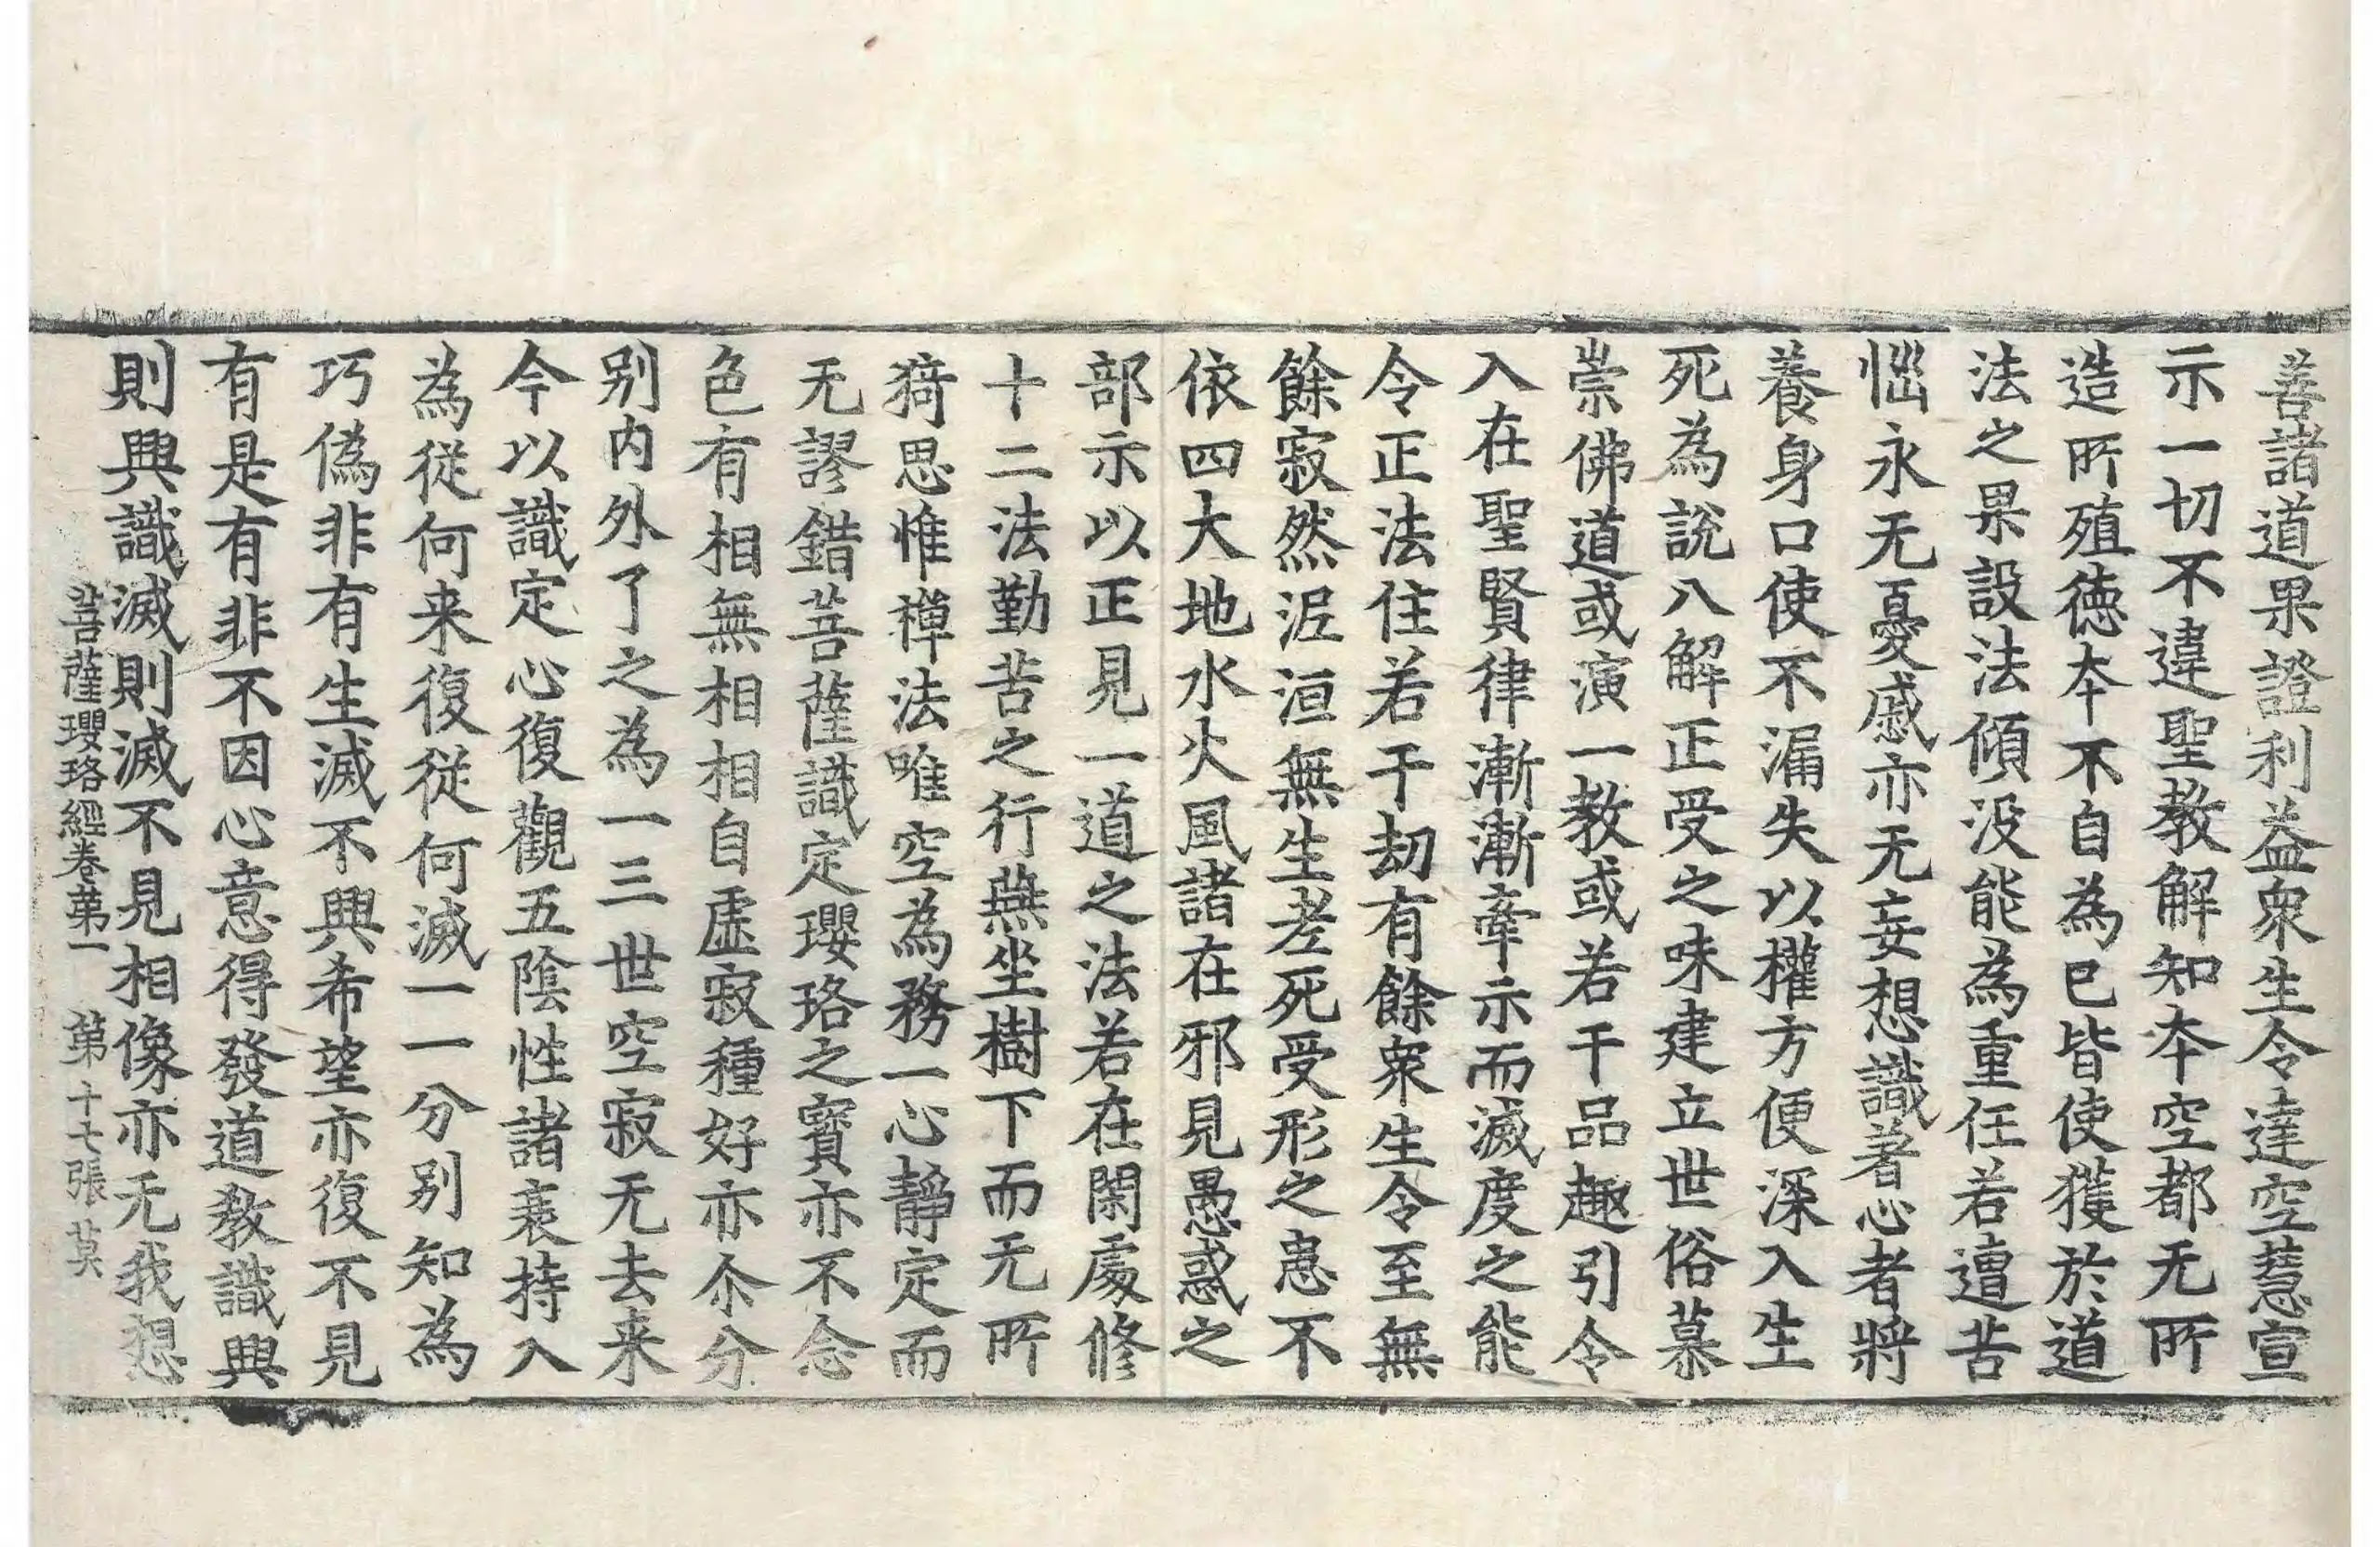 善諸道果證利益衆生令達空慧宣
示一切不違聖教解知夲空都无所
造所殖徳夲不自為已皆使獲於道
法之果設法傾没能為重任若遭苦
惱永无憂慼亦无妄想識著心者將
養身口使不漏失以權方便深入生
死為說八解正受之味建立世俗慕
崇佛道或演一教或若干品趣引令
入在聖賢律漸漸牽示而滅度之能
令正法住若干劫有餘衆生令至無
餘寂然泥洹無生老死受形之患不
依四大地水火風諸在邪見愚惑之
部示以正見一道之法若在閑處修
十二法勤苦之行燕坐樹下而无所
猗思惟禅法唯空為務一心靜定而
无謬錯菩薩識定瓔珞之寳亦不念
色有相無相相自虛寂種好亦尒分
别内外了之為一三世空寂无去来
今以識定心復觀五陰性諸衰持入
為從何来復從何滅一一分别知為
巧偽非有生滅不興希望亦復不見
有是有非不因心意得發道教識興
則興識滅則滅不見相像亦无我想
菩薩瓔珞經卷第一　第十七張　莫